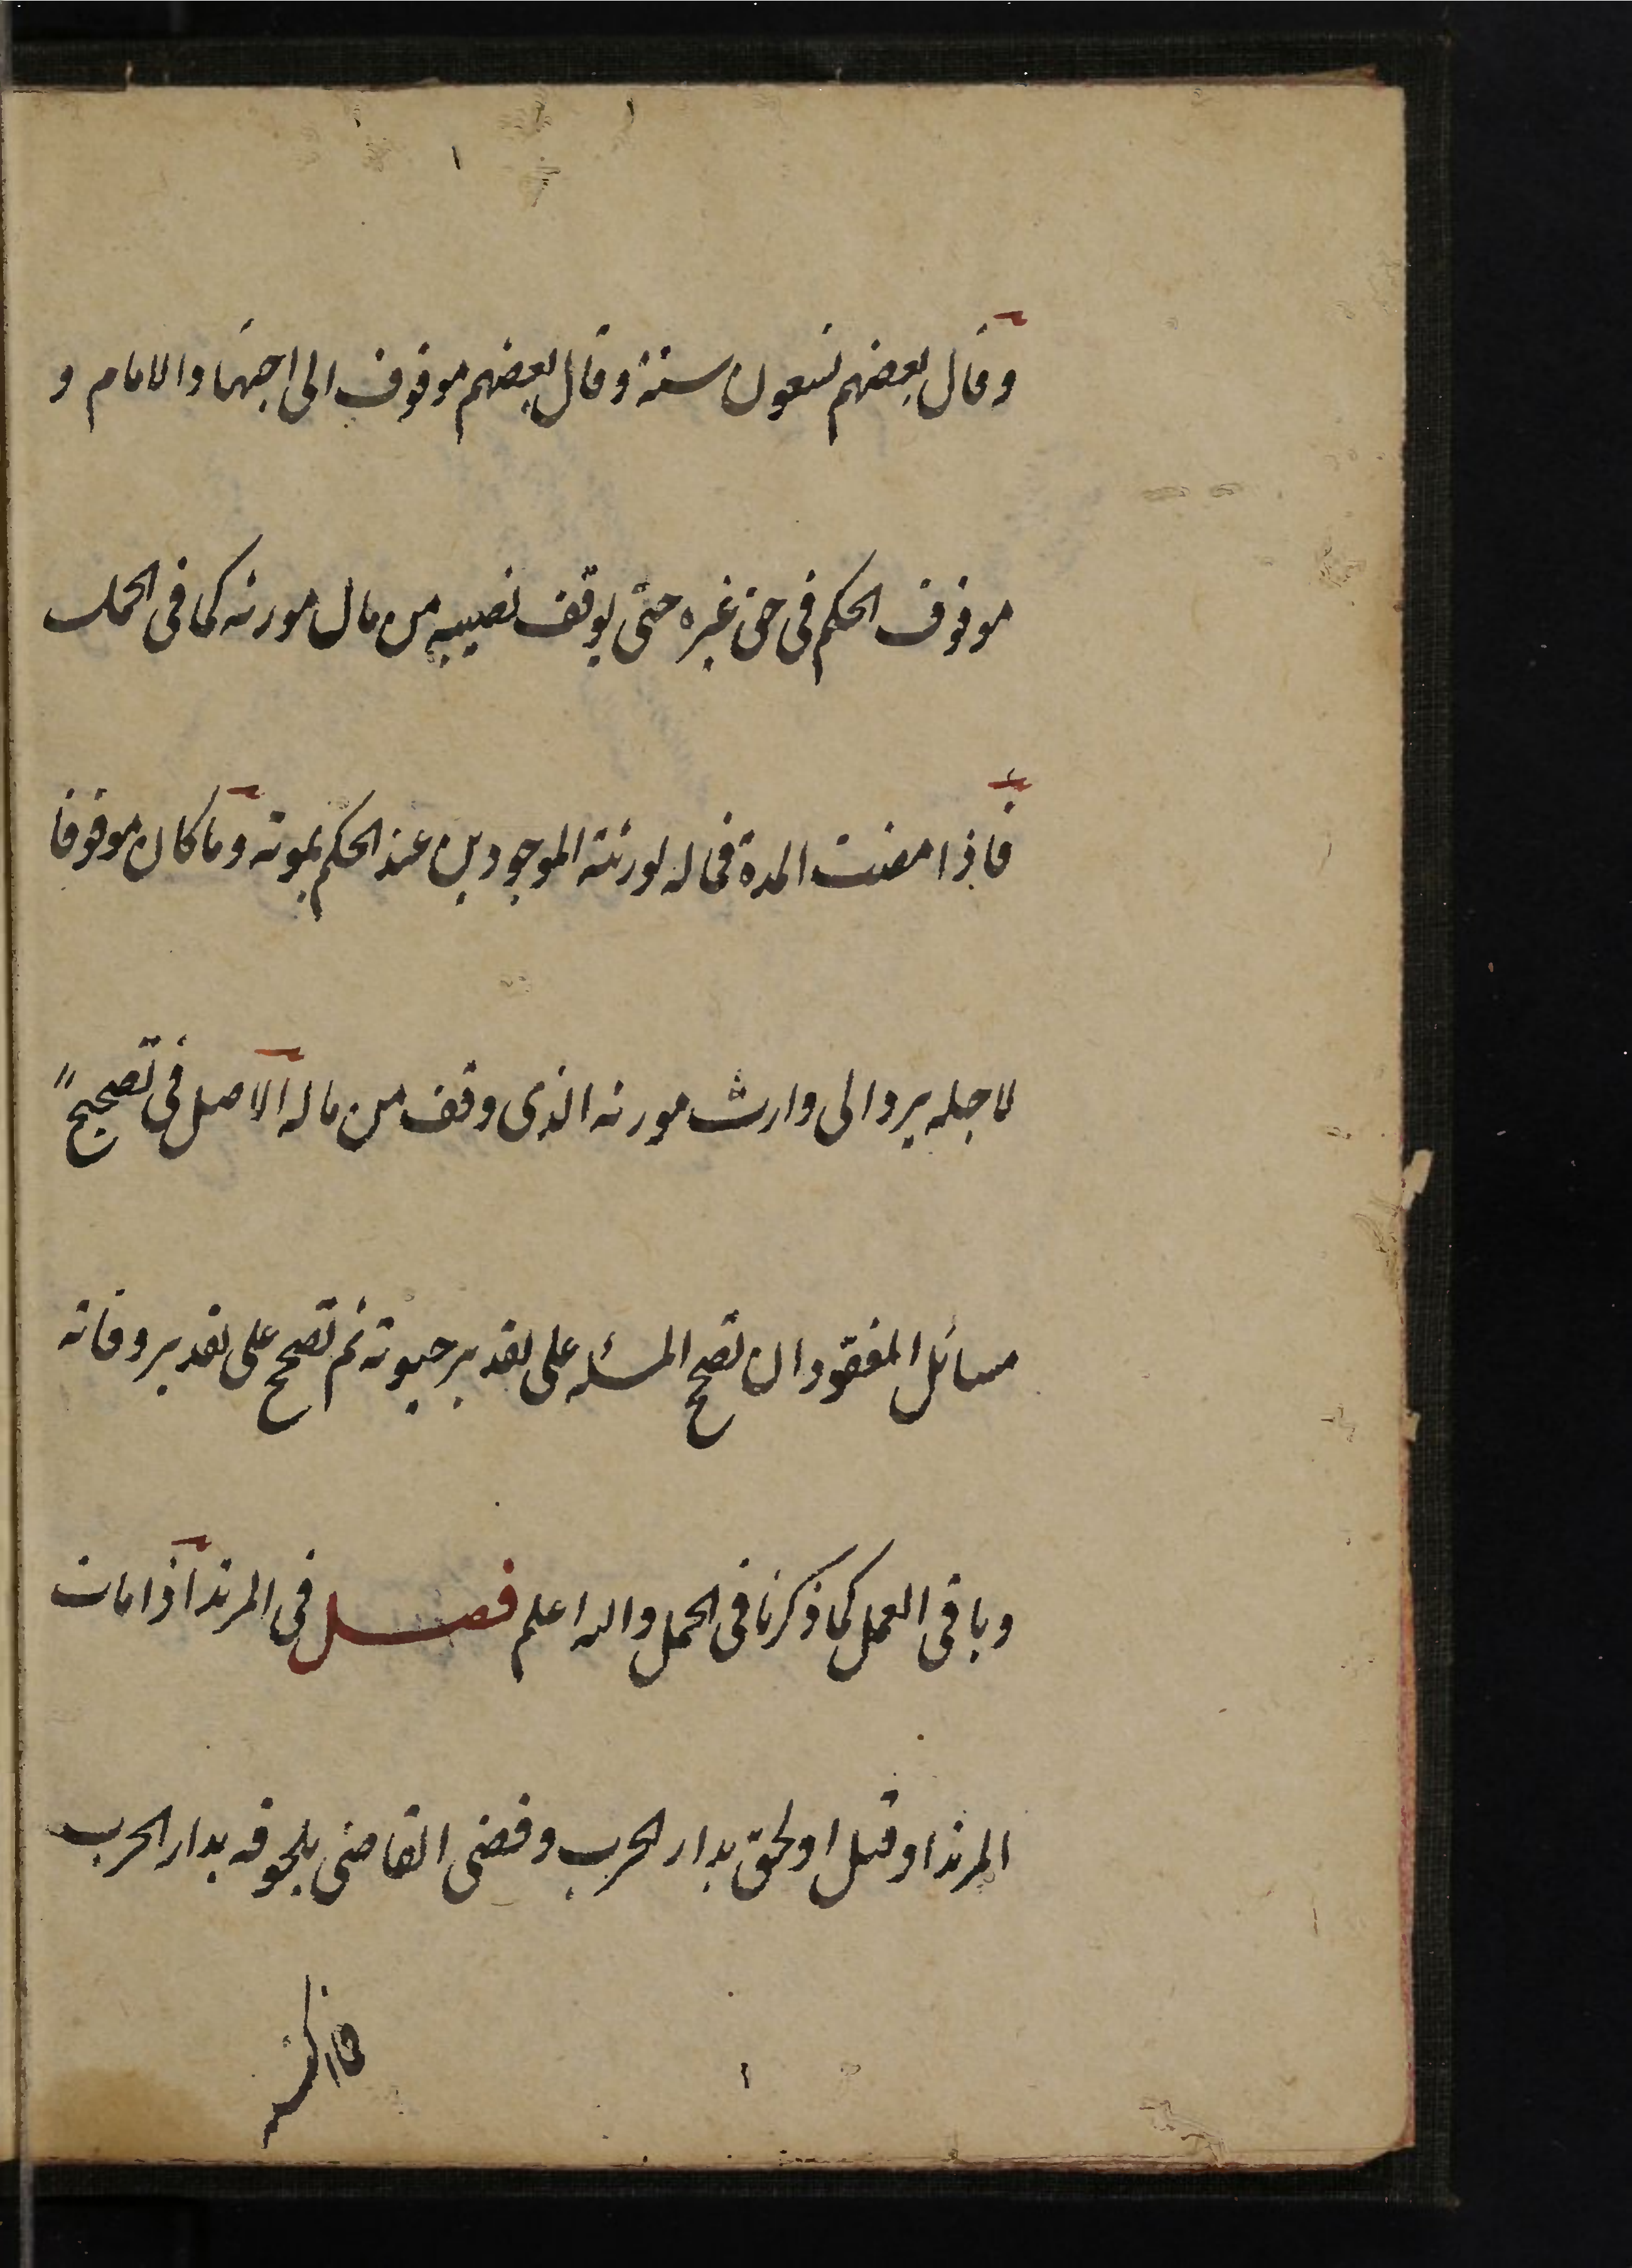 وقال بعضهم تسعون سنة وقال بعضهم موقوف الى اجتهاد الامام و
موقوف الحكم فى حق غيره حتى يوقف نصيبه من مال مورثه كما فى الحمل
فاذا مضت المدة فماله لورثته الموجودين عند الحكم بموته وما كان موقوفا
لاجله يرد الى وارث مورثه الذى وقف من ماله الاصل فى تصحيح
مسائل المفقود ان تصحح المسئله على تقدير حيوته ثم تصحح على تقدير وفاته
وباقى العمل كما ذكرنا فى الحمل والله اعلم فصل فى المرتد اذا مات
المرتد او قتل او لحق بدار الحرب وقضى القاضى بلحوقه بدار الحرب